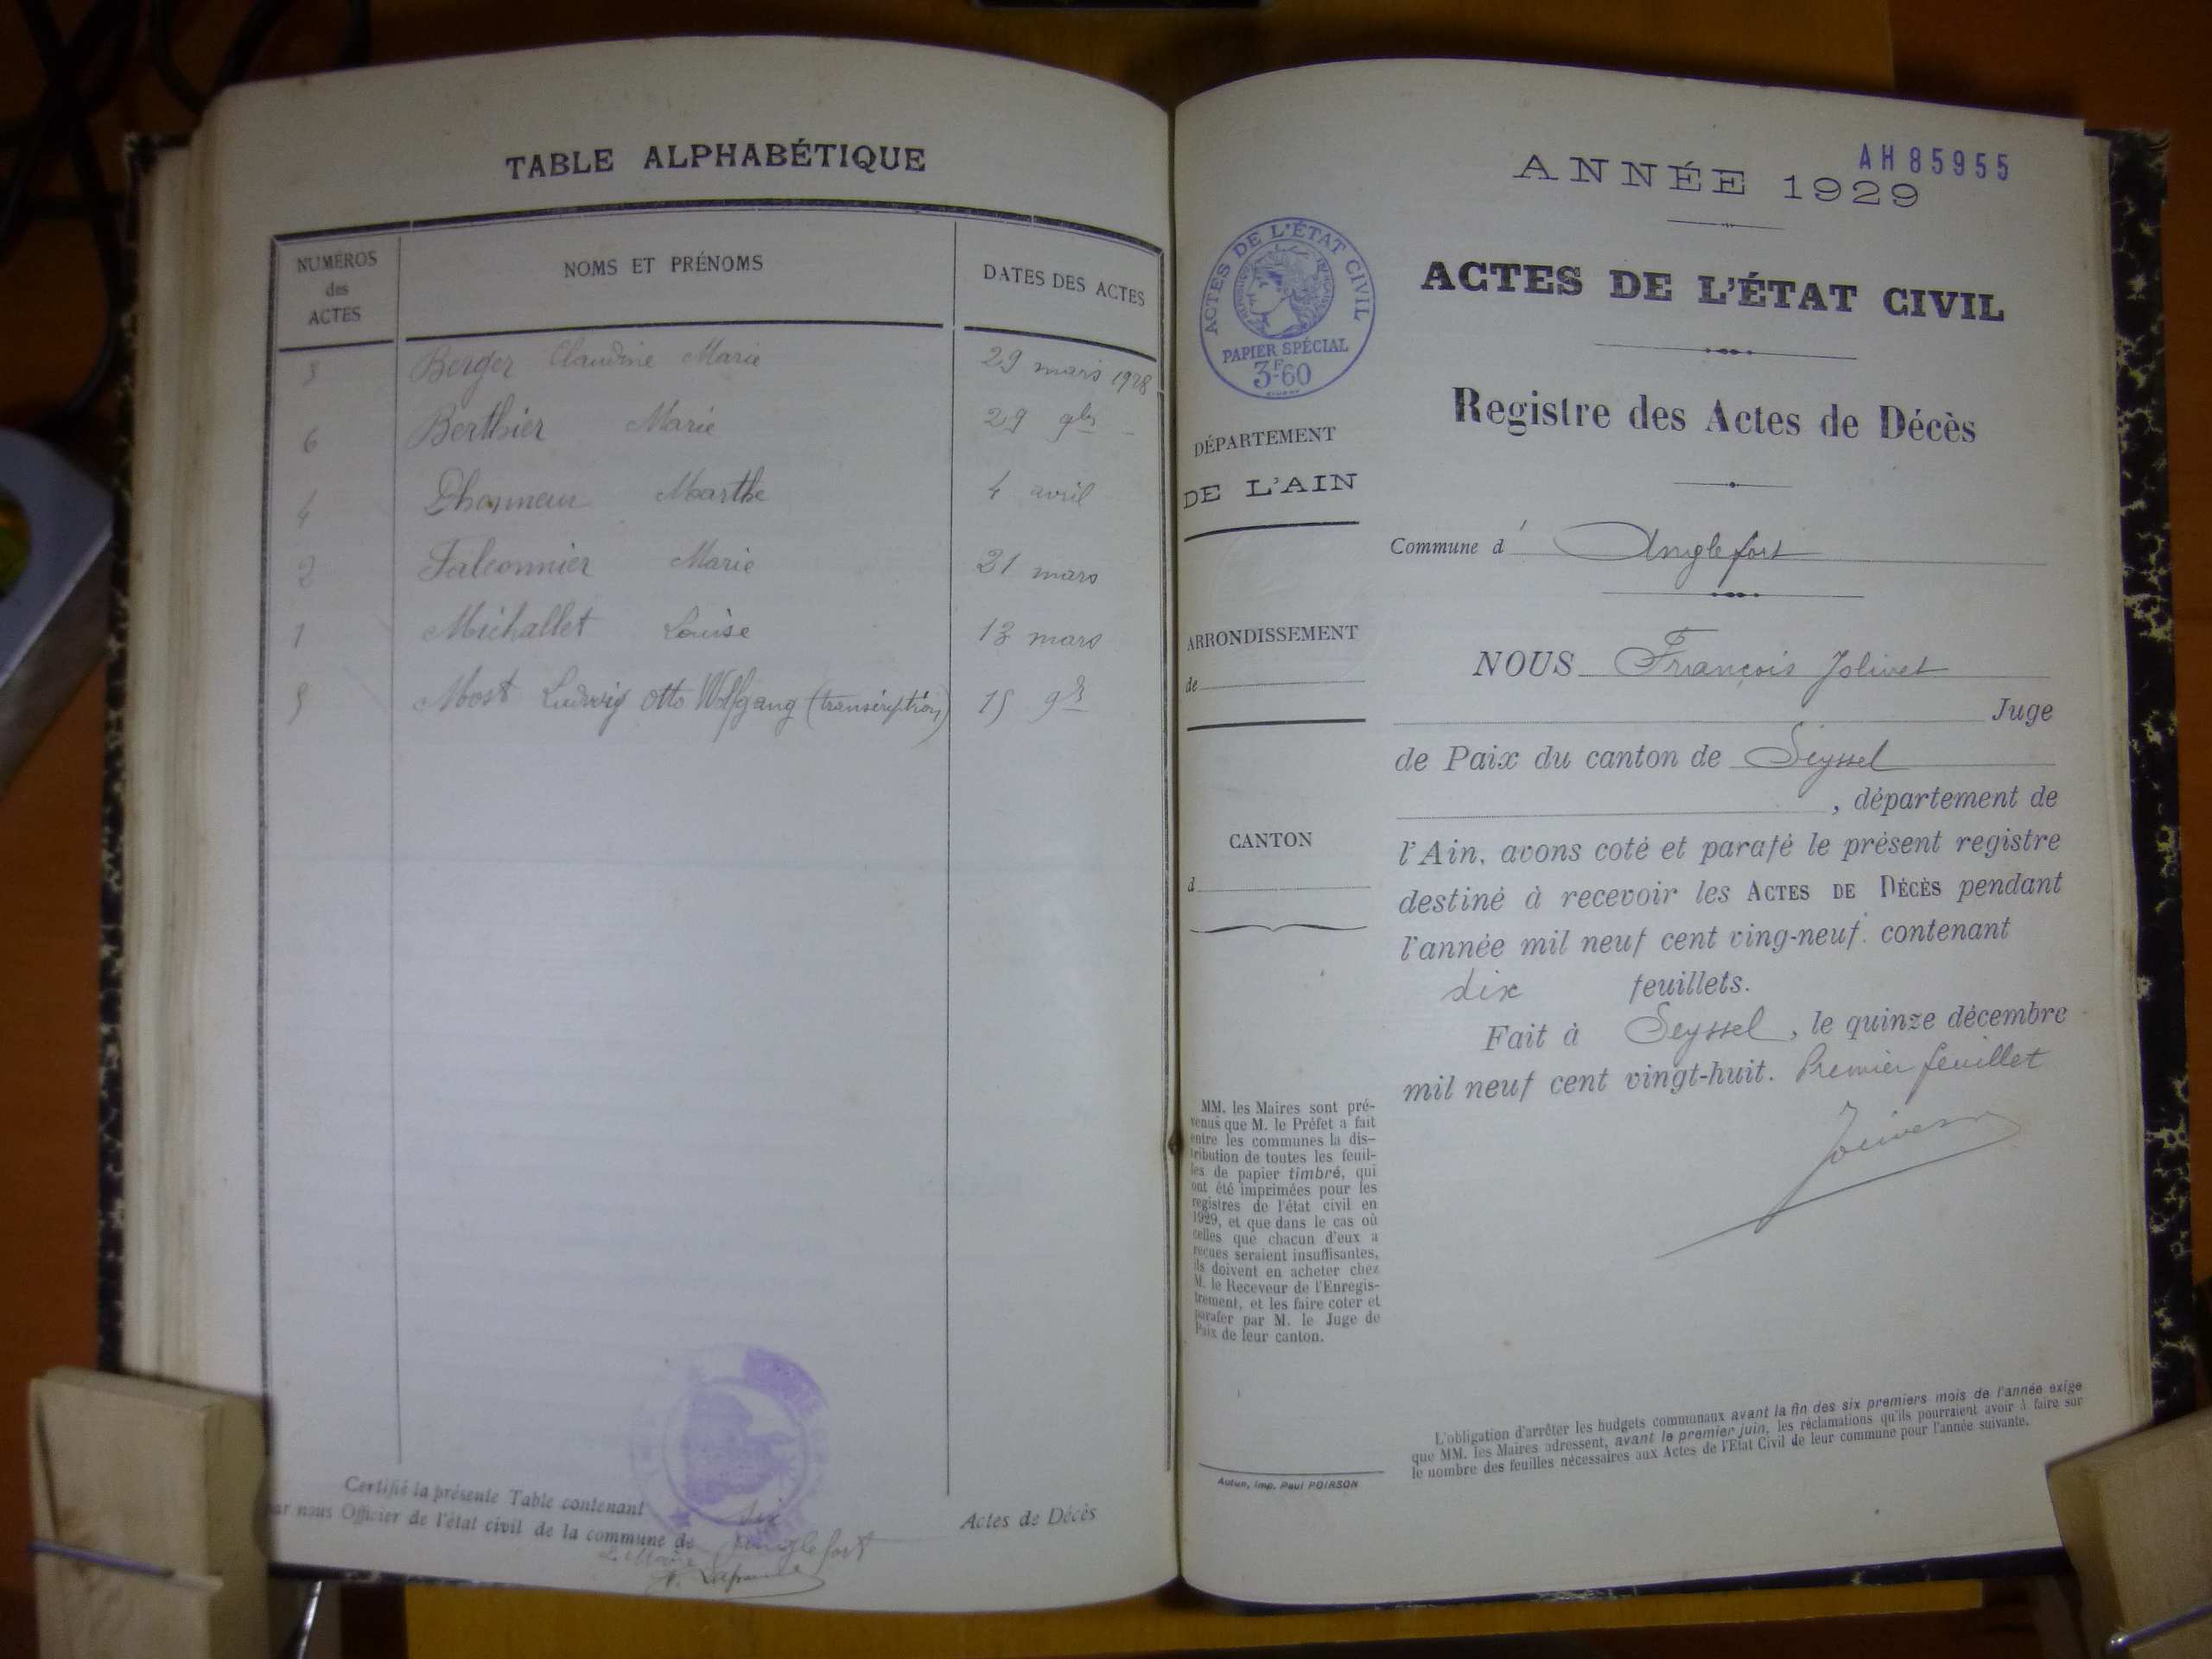 TABLE ALPHABÉTIQUE
NUMÉROS
des
ACTES
NOMS ET PRÉNOMS
DATES DES ACTES
3 Berger Claudine Marie 29 mars 1928
6 Berthier Marie 29 9bre -
4 Dhonneur Marthe 4 avril
2 Falconnier Marie 21 mars
1 Michallet Louise 13 mars
5 Most Ludwig Otto Wolfgang (transcription) 15 9bre
Certifié la présente Table contenant six Actes de Décès
par nous Officier de l'état civil de la commune de Anglefort
Le Maire
AH 85955
ANNÉE 1929
ACTES DE L'ÉTAT CIVIL
PAPIER SPÉCIAL
3F60
ACTES DE L'ÉTAT CIVIL
Registre des Actes de Décès
DÉPARTEMENT
DE L'AIN
Commune d' Anglefort
ARRONDISSEMENT
de
NOUS François Jolivet
Juge
de Paix du canton de Seyssel
, département de
CANTON
d
l'Ain, avons coté et parafé le présent registre
destiné à recevoir les ACTES DE DÉCÈS pendant
l'année mil neuf cent ving-neuf. contenant
dix feuillets.
Fait à Seyssel, le quinze décembre
mil neuf cent vingt-huit. Premier feuillet
MM. les Maires sont pré-
venus que M. le Préfet a fait
entre les communes la dis-
tribution de toutes les feuil-
les de papier timbré, qui
ont été imprimées pour les
registres de l'état civil en
1929, et que dans le cas où
celles que chacun d'eux a
reçues seraient insuffisantes,
ils doivent en acheter chez
M. le Receveur de l'Enregis-
trement, et les faire coter et
parafer par M. le Juge de
Paix de leur canton.
L'obligation d'arrêter les budgets communaux avant la fin des six premiers mois de l'année exige
que MM. les Maires adressent, avant le premier juin, les réclamations qu'ils pourraient avoir à faire sur
le nombre des feuilles nécessaires aux Actes de l'Etat Civil de leur commune pour l'année suivante.
Autun, Imp. Paul POIRSON